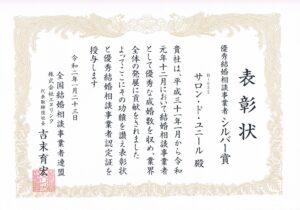 表彰状
優秀結婚相談事業者 シルバー賞
サロン・ド・ユニール 殿
貴社は、平成三十一年一月から令和
元年十二月において結婚相談事業者
として優秀な成婚数を収め、業界
全体の発展に貢献をされました
よってここにその功績を讃え表彰状
と優秀結婚相談事業者認定証を
授与します
令和二年二月二十三日
全国結婚相談事業者連盟
株式会社エヌリンク
代表取締役社長
吉末育宏